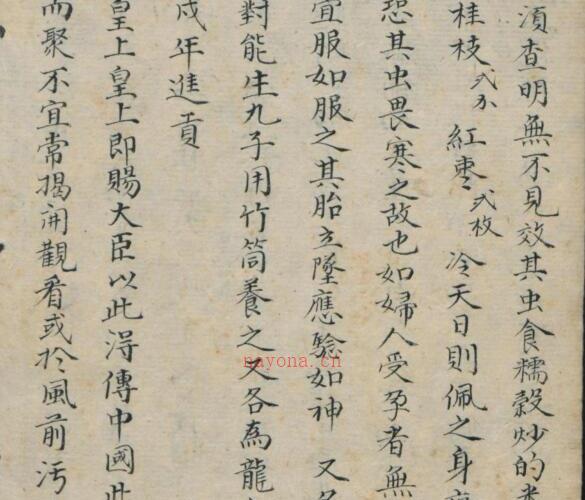 須查明無不見效其虫食糯穀炒的
桂枝弍分 紅棗弍枚 冷天日則佩之身
恐其虫畏寒之故也如婦人受孕者無
宜服如服之其胎立墜應驗如神 又名
對能生九子用竹筒養之又各為龍
戌年進貢
皇上皇上即賜大臣以此淂傳中國此
而聚不宜常揭開觀看或扵風前汚
nayona.cn